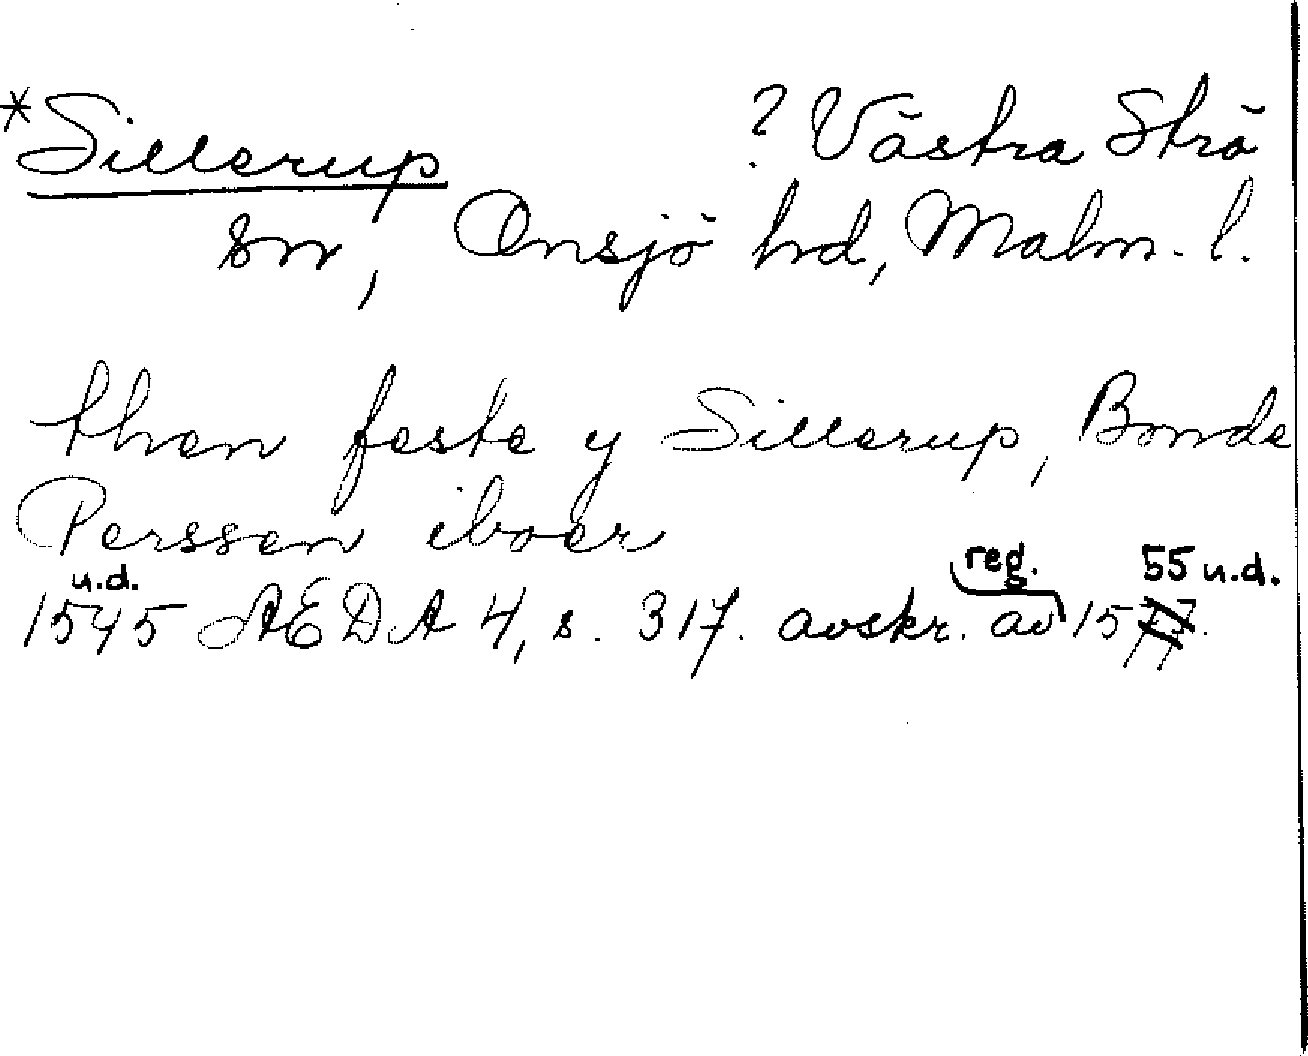 *Sillerup ? Västra Strö
sn, Onsjö hd, Malm. l.
then feste y Sillerup, Bonde
Perssen iboer
u.d. reg. 55 u.d.
1545 AEDA 4, s. 317. avskr. av 15